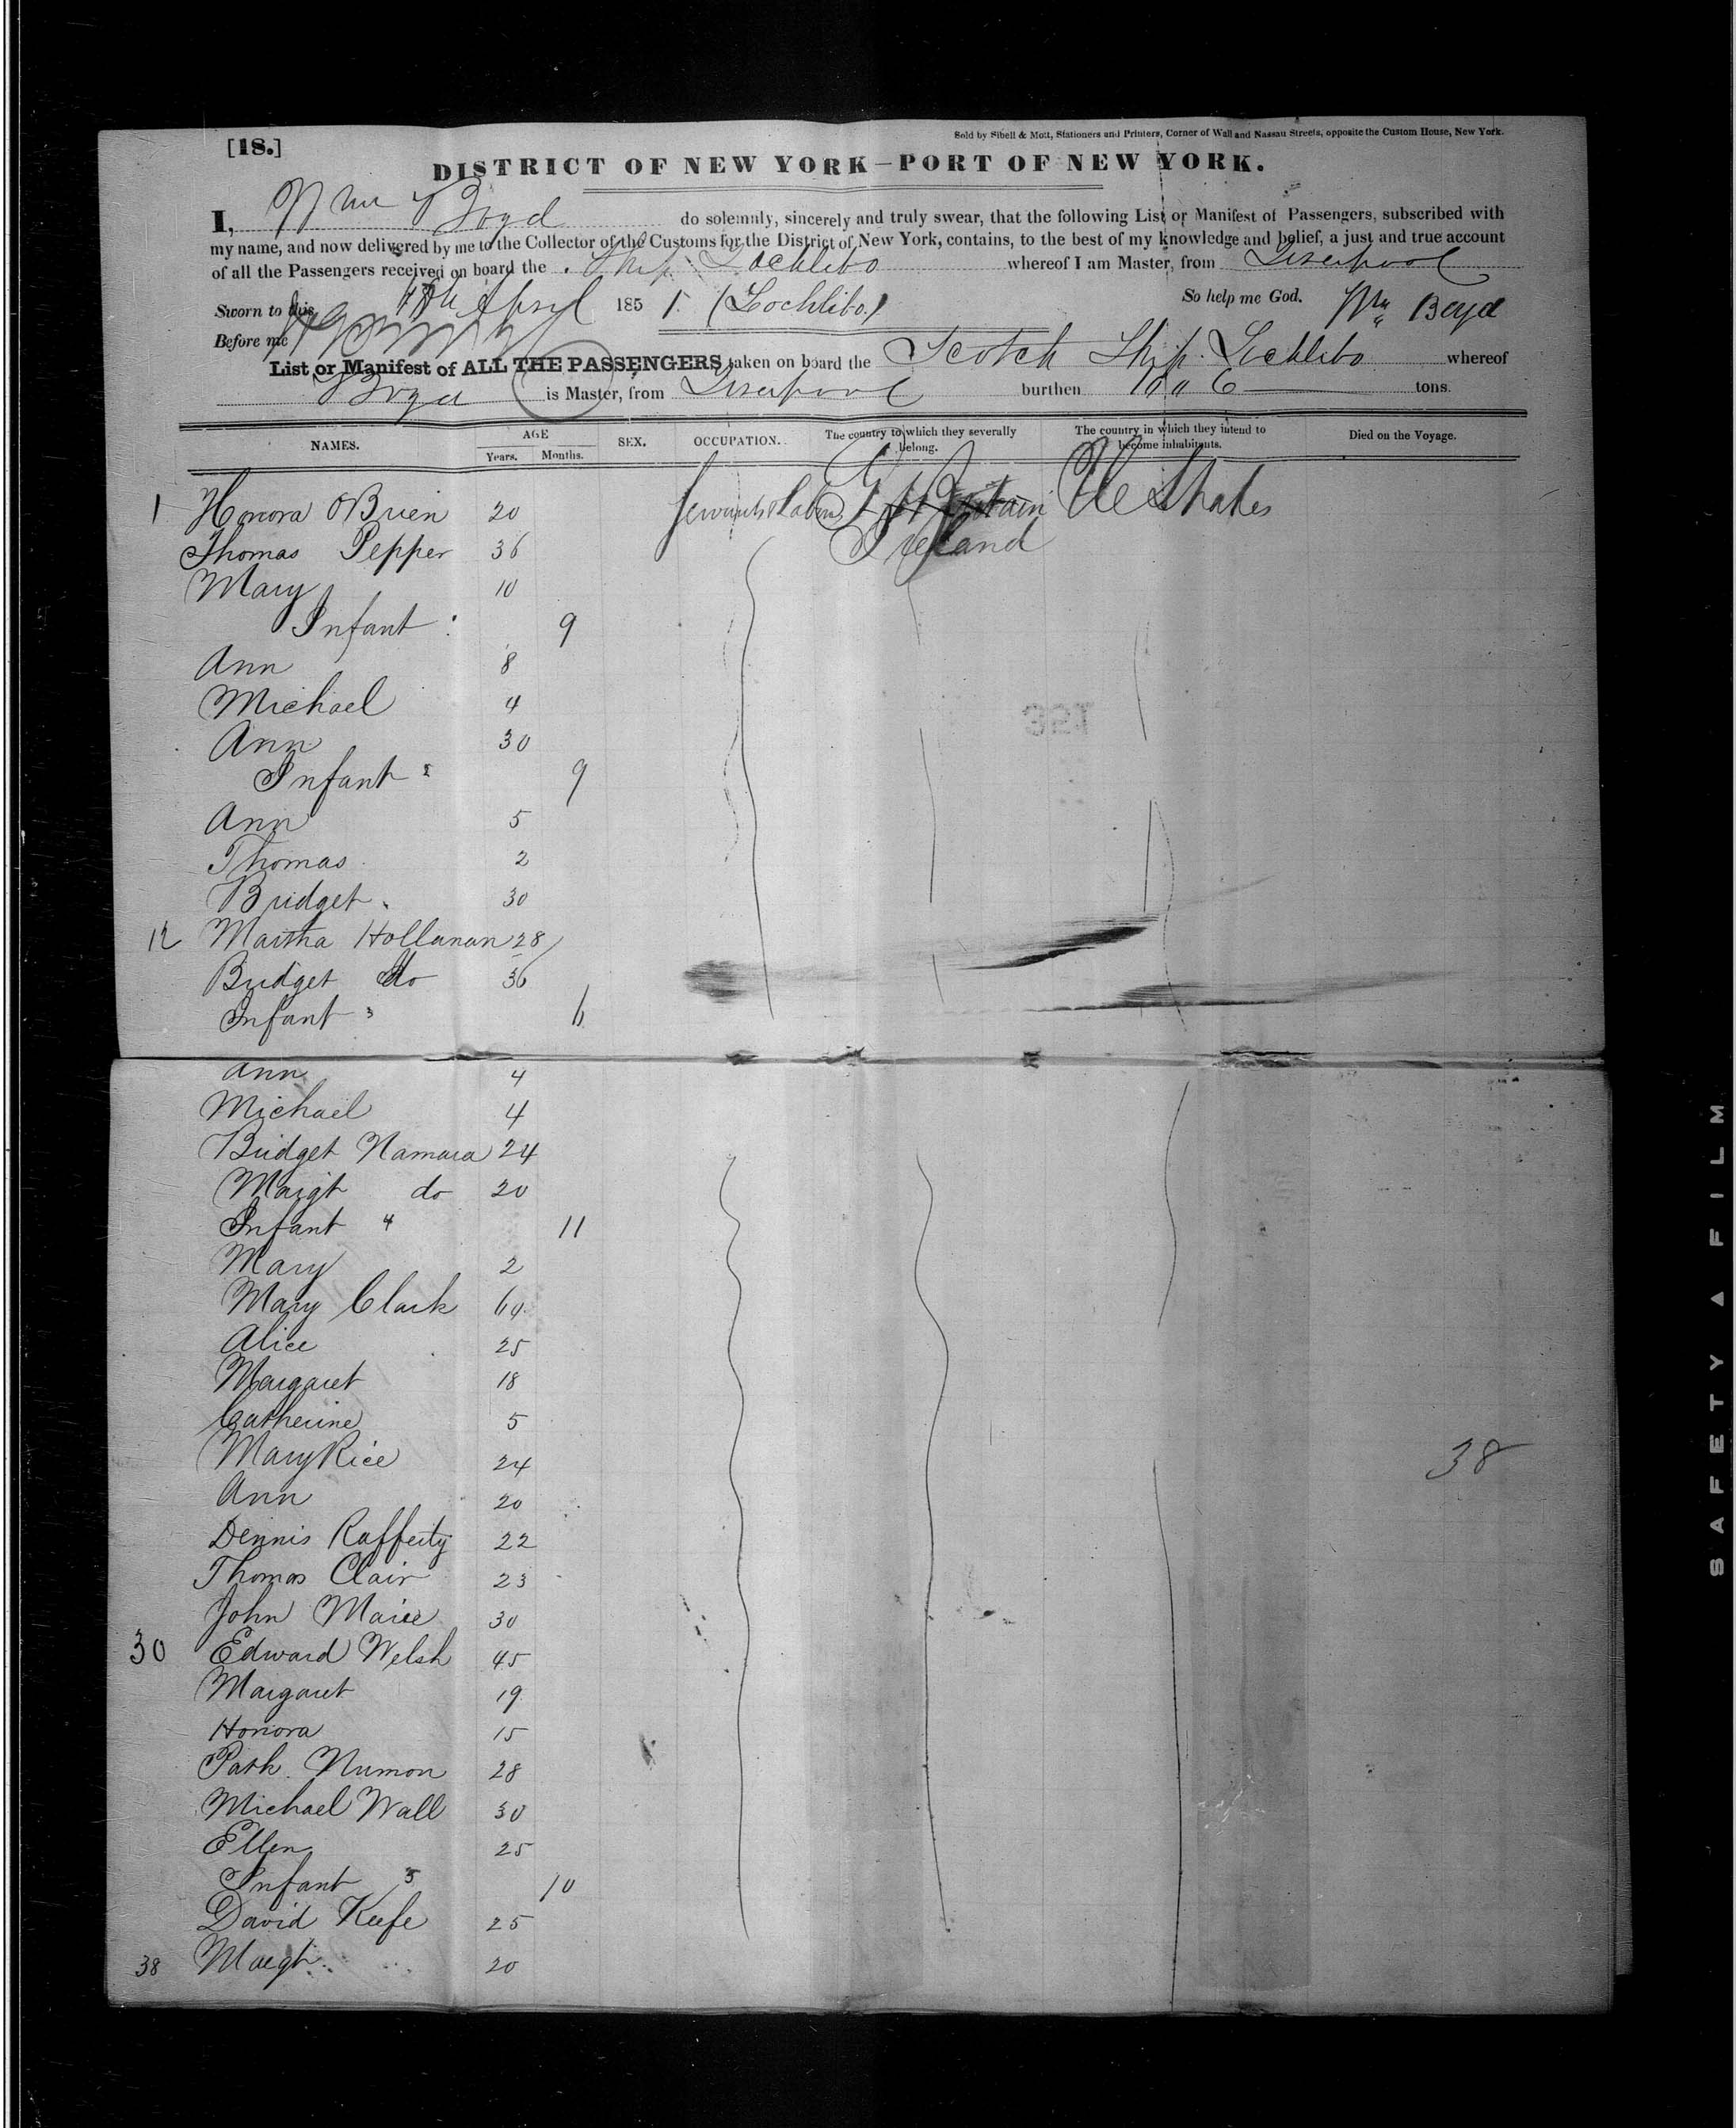 [18.]
Sold by Sibell & Mott, Stationers and Printers, Corner of Wall and Nassau Streets, opposite the Custom House, New York.
DISTRICT OF NEW YORK—PORT OF NEW YORK.
I, Wm Boyd do solemnly, sincerely and truly swear, that the following List or Manifest of Passengers, subscribed with
my name, and now delivered by me to the Collector of the Customs for the District of New York, contains, to the best of my knowledge and belief, a just and true account
of all the Passengers received on board the Ship Lochlibo whereof I am Master, from Liverpool
Sworn to this April 1851. (Lochlibo.) So help me God. Wm Boyd
Before me
List or Manifest of ALL THE PASSENGERS taken on board the Scotch Ship Lochlibo whereof
Boyd is Master, from Liverpool burthen tons.
NAMES. AGE Years. Months. SEX. OCCUPATION. The country to which they severally belong. The country in which they intend to become inhabitants. Died on the Voyage.
1 Honora OBrien 20 Gt Britain U States
Thomas Pepper 36 Ireland
Mary 10
Infant 9
Ann 8
Michael 4
Ann 30
Infant 2 9
Ann 5
Thomas 2
Bridget 30
12 Martha Hollanan 28
Bridget do 36
Infant 3 6
Ann 4
Michael 4
Bridget Namara 24
Margt do 20
Infant 4 11
Mary 2
Mary Clark 60
Alice 25
Margaret 18
Catherine 5
Mary Rice 24
38
Ann 20
Dennis Rafferty 22
Thomas Clair 23
John 30
30 Edward Welsh 45
Margaret 19
Honora 15
Patk. Numon 28
Michael Wall 30
Ellen 25
Infant 5 10
David Keefe 25
38 Margt 20
SAFETY FILM